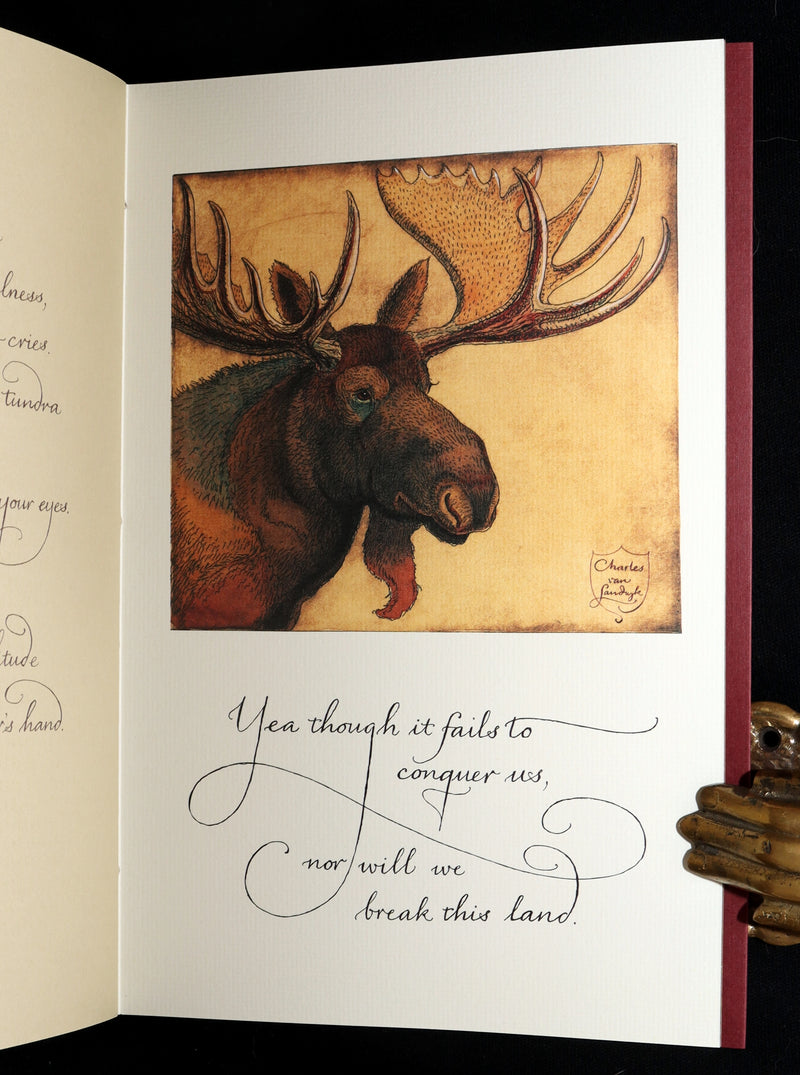 lness,
cries.
tundra
your eyes.
tude
r's hand.
Charles
van
Sandwyk
Yea though it fails to
conquer us,
nor will we
break this land.